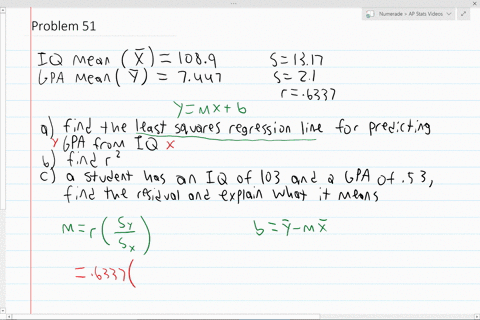 Problem 51
Numerade > AP Stats Videos
IQ mean (X̄) = 108.9 S = 13.17
GPA mean (Ȳ) = 7.447 S = 2.1
r = .6337
Y = mx + b
a) find the least squares regression line for predicting
Y GPA from IQ X
b) find r²
c) a student has an IQ of 103 and a GPA of .53,
find the residual and explain what it means
M = r (Sy/Sx) b = Ȳ - MX̄
= .6337(